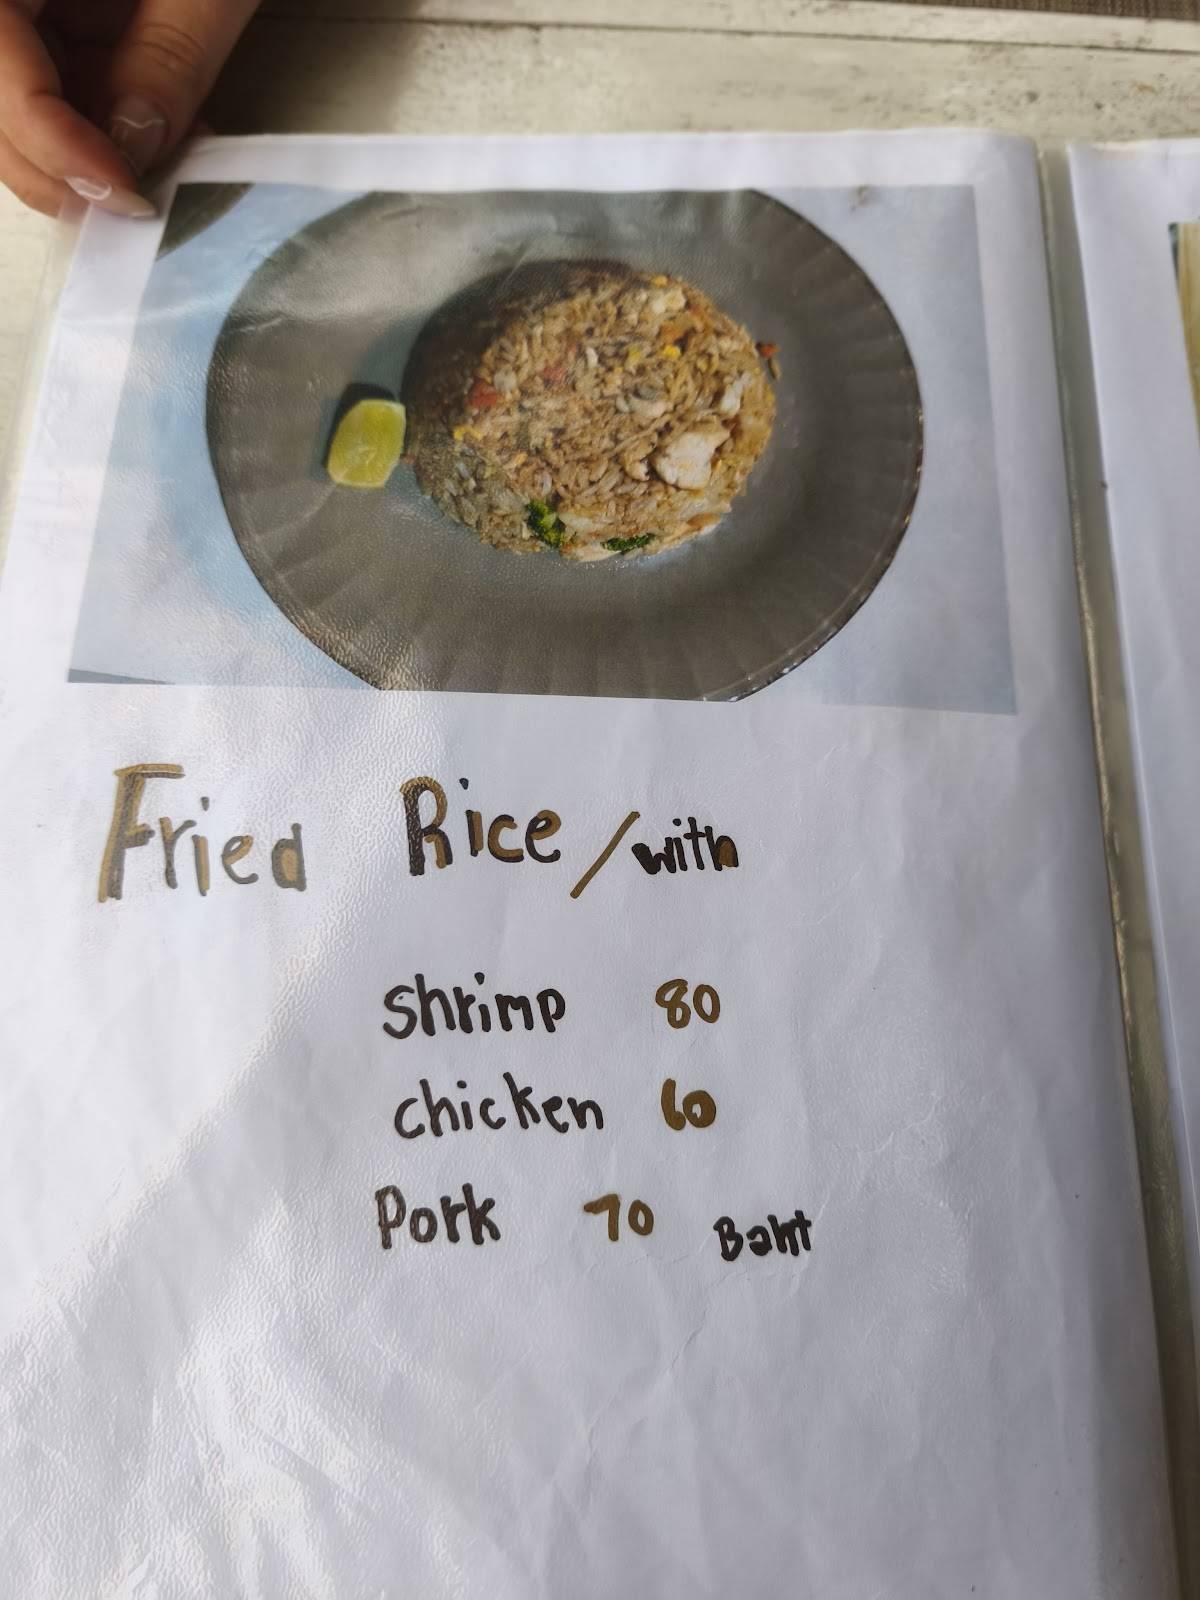 Fried Rice / with
shrimp 80
chicken 60
Pork 70 Baht